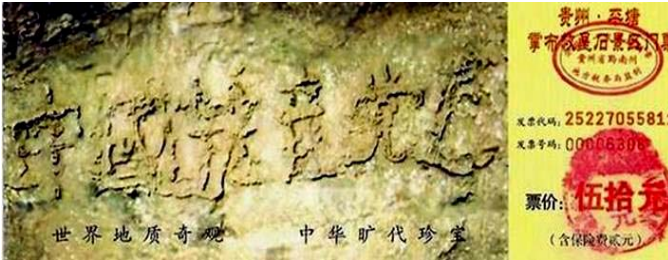 中國共產党亡
世界地质奇观 中华旷代珍宝
贵州·平塘
掌布救星石景区门票
贵州省黔南州
地方税务局监制
发票代码: 2522705581
发票号码: 0000630
票价: 伍拾元
(含保险费贰元)